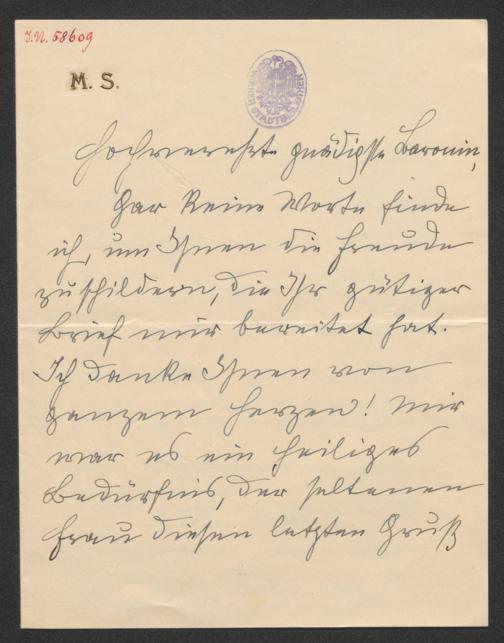 I.N. 58609
M. S.
Hochverehrte gnädigste Baronin,
Gar keine Worte finde
ich, um Ihnen die Freude
zu schildern, die Ihr gütiger
Brief mir bereitet hat.
Ich danke Ihnen von
ganzem Herzen! Mir
war es ein heiliges
Bedürfnis, der seltenen
Frau diesen letzten Gruß